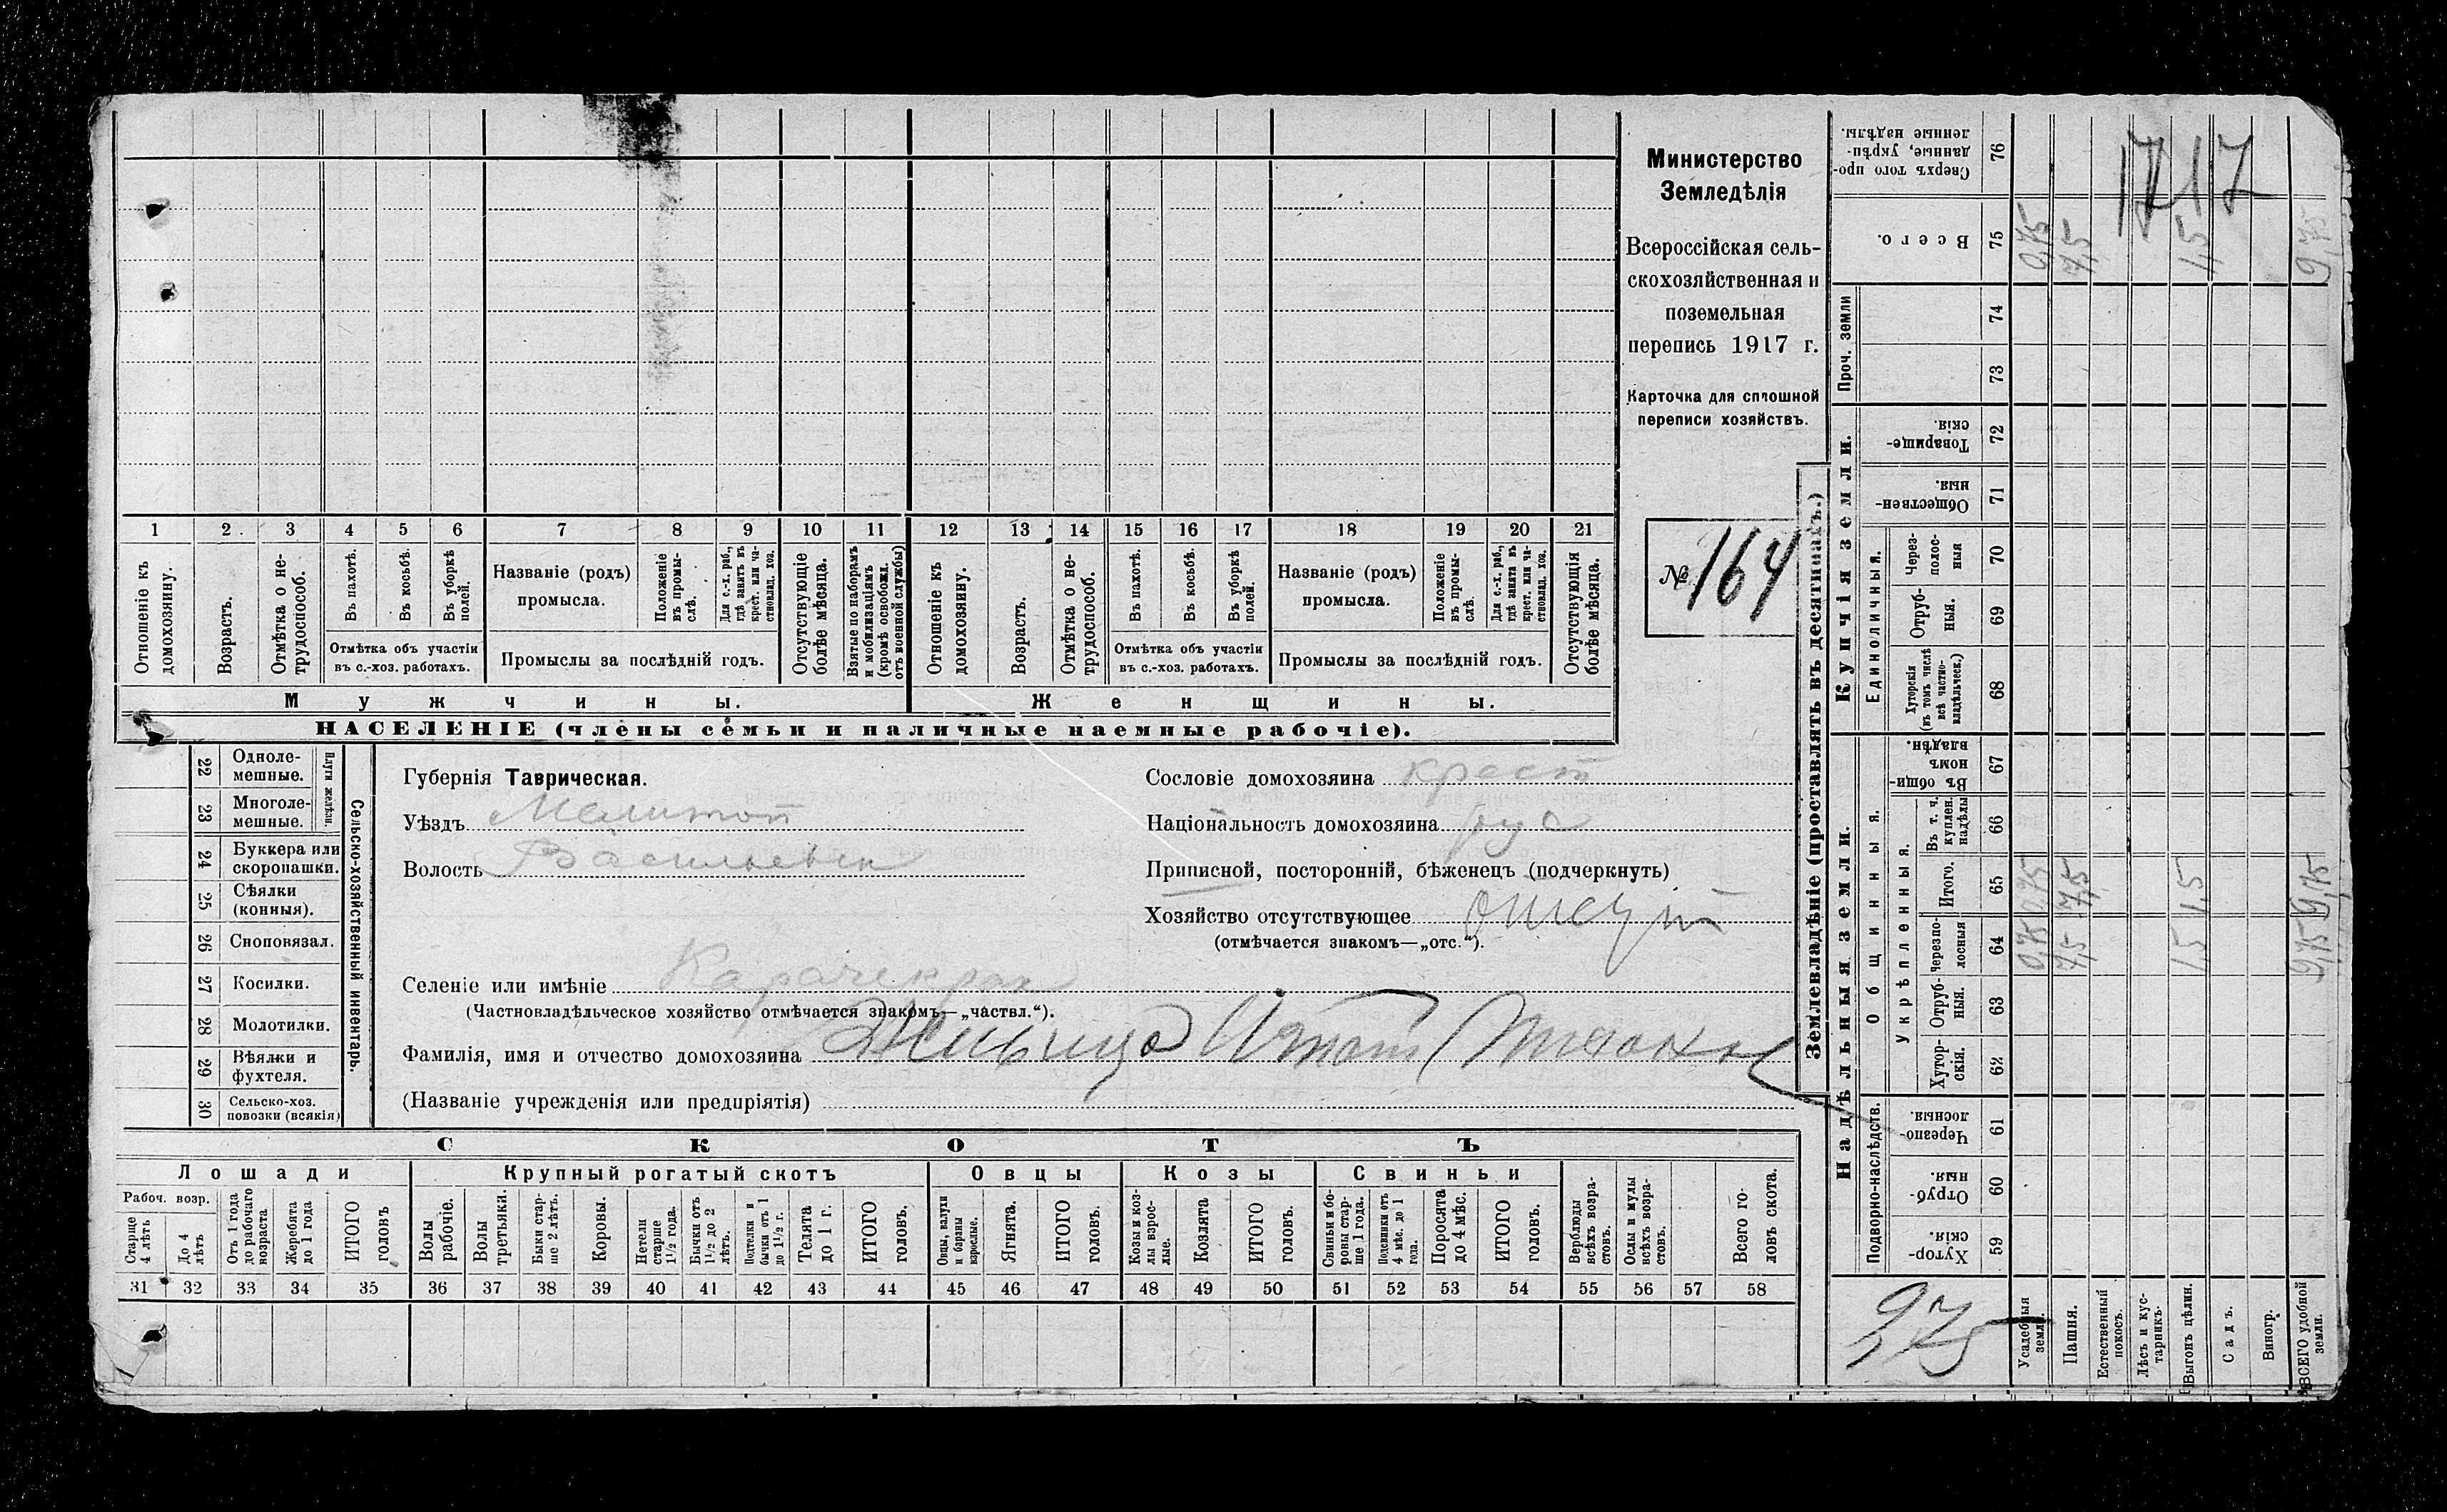 1 2 3 4 5 6 7 8 9 10 11 12 13 14 15 16 17 18 19 20 21
Отношеніе къ домохозяину.
Возрастъ.
Отмѣтка о не-
трудоспособ.
Въ пахотѣ.
Въ косьбѣ.
Въ уборкѣ полей.
Отмѣтка объ участіи
въ с.-хоз. работахъ.
Названіе (родъ)
промысла.
Положеніе въ промы-
слѣ.
Для с.-х. раб.,
гдѣ занятъ въ
крест. или ча-
стновлад. хоз.
Промыслы за послѣдній годъ.
Отсутствующіе
болѣе мѣсяца.
Взятые по наборамъ
и мобилизаціямъ
(кромѣ освобожд.
отъ военной службы)
Отношеніе къ
домохозяину.
Возрастъ.
Отмѣтка о не-
трудоспособ.
Въ пахотѣ.
Въ косьбѣ.
Въ уборкѣ
полей.
Отмѣтка объ участіи
въ с.-хоз. работахъ.
Названіе (родъ)
промысла.
Положеніе
въ промы-
слѣ.
Для с.-х. раб.,
гдѣ занята въ
крест. или ча-
стновлад. хоз.
Промыслы за послѣдній годъ.
Отсутствующія
болѣе мѣсяца.
Мужчины.
Женщины.
НАСЕЛЕНІЕ (члены семьи и наличные наемные рабочіе).
Министерство
Земледѣлія
Всероссійская сель-
скохозяйственная и
поземельная
перепись 1917 г.
Карточка для сплошной
переписи хозяйствъ.
№ 164
22 Одноле-
мешные.
23 Многоле-
мешные.
Плуги желѣзн.
24 Буккера или
скоропашки.
25 Сѣялки
(конныя).
26 Сноповязал.
27 Косилки.
28 Молотилки.
29 Вѣялки и
фухтеля.
30 Сельско-хоз.
повозки (всякія)
Сельско-хозяйственный инвентарь.
Губернія Таврическая.
Уѣздъ Мелитоп
Волость Васильевск
Сословіе домохозяина крест
Національность домохозяина рус
Приписной, посторонній, бѣженец (подчеркнуть)
Хозяйство отсутствующее отсут
(отмѣчается знакомъ—„отс.“).
Селеніе или имѣніе Карачекрак
(Частновладѣльческое хозяйство отмѣчается знакомъ—„частвл.“).
Фамилія, имя и отчество домохозяина
(Названіе учрежденія или предпріятія)
СКОТЪ
Лошади
Крупный рогатый скотъ
Овцы
Козы
Свиньи
Рабоч. возр.
Старше
4 лѣтъ
До 4
лѣтъ
Отъ 1 года
до рабочаго
возраста
Жеребята
до 1 года
ИТОГО
головъ
Волы
рабочіе.
Волы
третьяки.
Быки стар-
ше 2 лѣтъ.
Коровы.
Нетели
старше
1½ года.
Бычки отъ
1½ до 2
лѣтъ.
Подтелки и
бычки отъ 1
до 1½ г.
Телята
до 1 г.
ИТОГО
головъ.
Овцы, валухи
и бараны
взрослые.
Ягнята.
ИТОГО
головъ.
Козы и коз-
лы взрос-
лые.
Козлята
ИТОГО
головъ.
Свиньи и бо-
ровы стар-
ше 1 года.
Подсвинки отъ
4 мѣс. до 1
года.
Поросята
до 4 мѣс.
ИТОГО
головъ.
Верблюды
всѣхъ возра-
стовъ.
Ослы и мулы
всѣхъ возра-
стовъ.
Всего го-
ловъ скота.
31 32 33 34 35 36 37 38 39 40 41 42 43 44 45 46 47 48 49 50 51 52 53 54 55 56 57 58
Землевладѣніе (проставлять въ десятинахъ.)
Надѣльныя земли.
Купчія земли.
Проч. земли
Подворно-наслѣдств.
Общинныя.
Укрѣпленныя.
Единоличныя.
76 Сверхъ того про-
данные, укрѣп-
ленные надѣлы.
75 Всего. 0,75 7,5 1,5 9,75
17 17
74
73
72 Товарище-
скія.
71 Обществен-
ныя.
70 Через-
полос-
ныя
69 Отруб-
ныя.
68 Хуторскія
(въ томъ числѣ
всѣ частно-
владѣльческ.)
67 Въ общин-
номъ
владѣн.
66 Въ т. ч.
куплен.
надѣлы
65 Итого. 0,75 7,5 1,5 9,75
64 Черезпо-
лосныя 0,75 7,5 1,5 9,75
63 Отруб-
ныя.
62 Хутор-
скія.
61 Черезпо-
лосныя.
60 Отруб-
ныя.
59 Хутор-
скія.
9,75
Усадебныя
земли.
Пашня.
Естественный
покосъ.
Лѣсъ и кус-
тарникъ.
Выгонъ цѣлин.
Садъ.
Виногр.
ВСЕГО удобной
земли.